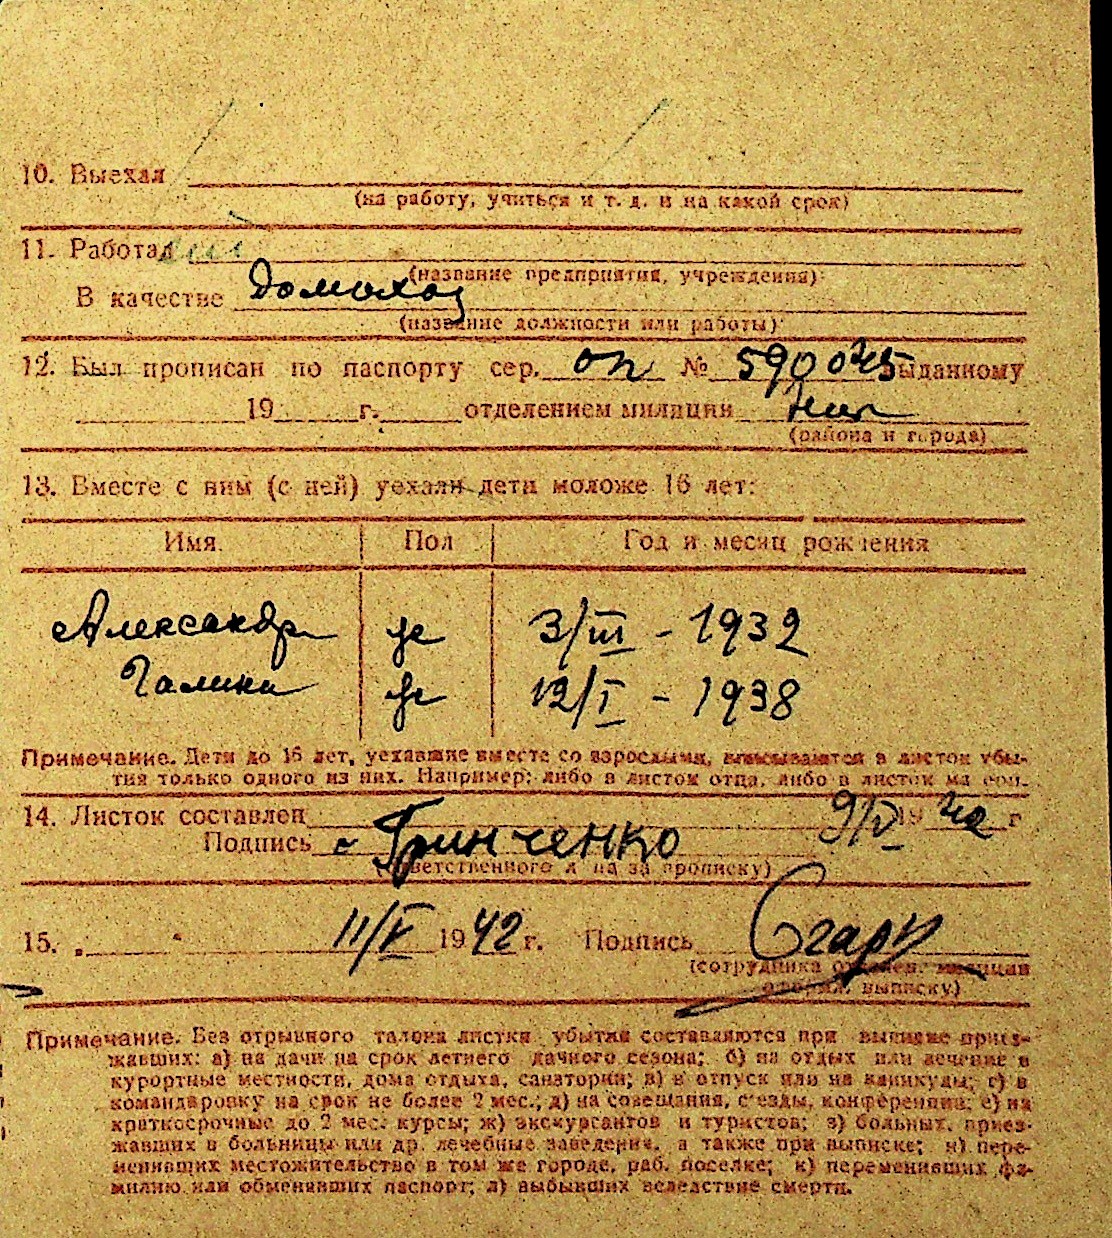 10. Выехал
(на работу, учиться и т. д. и на какой срок)
11. Работал
(название предприятия, учреждения)
В качестве Домохоз
(название должности или работы)
12. Был прописан по паспорту сер. оп № 590045 выданному
19 г. отделением милиции
(района и города)
13. Вместе с ним (с ней) уехали дети моложе 16 лет:
Имя Пол Год и месяц рождения
Александр 3/III - 1932
Галина 12/I - 1938
Примечание. Дети до 16 лет, уехавшие вместе со взрослыми, вписываются в листок убы-
тия только одного из них. Например: либо в листок отца, либо в листок
14. Листок составлен 9/V 1942 г
Подпись Гринченко
(ответственного лица за прописку)
15. „ “ 11/V 1942 г. Подпись
(сотрудника отделен. милиции
оформ. выписку)
Примечание. Без отрывного талона листки убытия составляются при выписке приез-
жавших: а) на дачи на срок летнего дачного сезона; б) на отдых или лечение в
курортные местности, дома отдыха, санатории; в) в отпуск или на каникулы; г) в
командировку на срок не более 2 мес.; д) на совещания, съезды, конференции; е) на
краткосрочные до 2 мес. курсы; ж) экскурсантов и туристов; з) больных, приез-
жавших в больницы или др. лечебные заведения, а также при выписке; и) пере-
менивших местожительство в том же городе, раб. поселке; к) переменивших фа-
милию или обменявших паспорт; л) выбывших вследствие смерти.